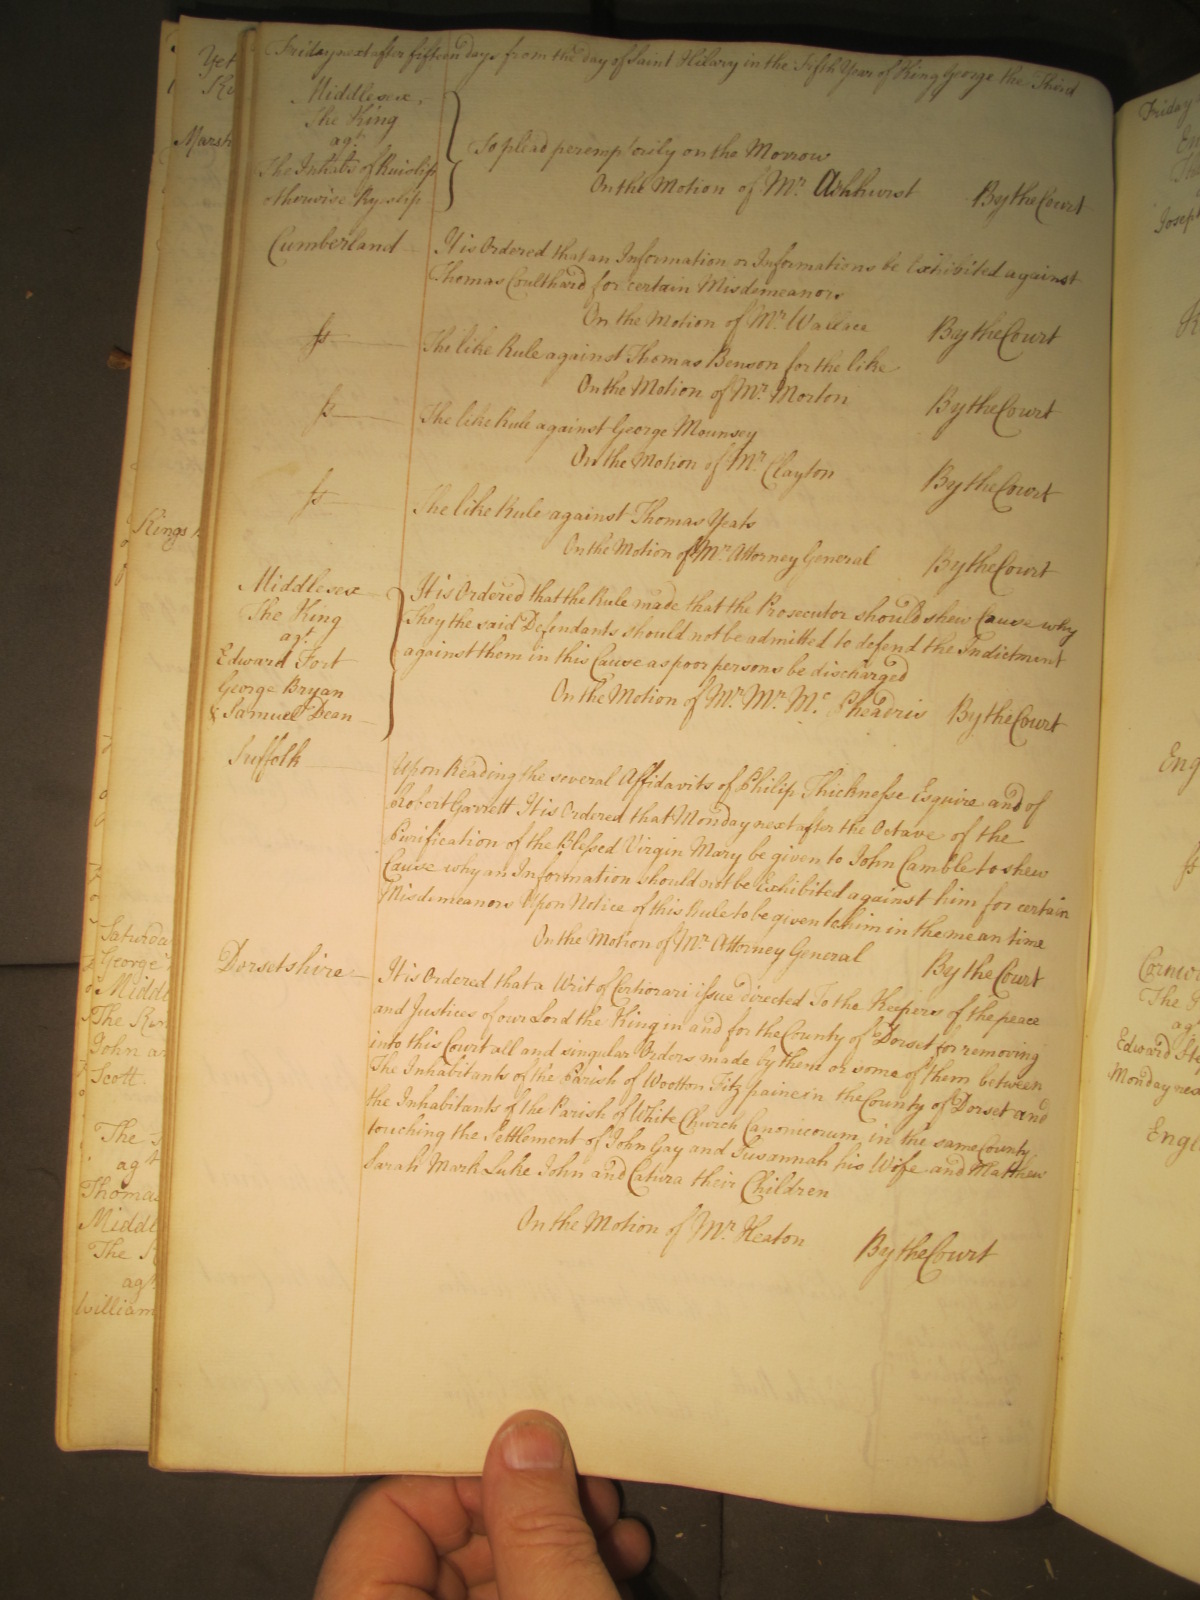 Friday next after fifteen days from the day of Saint Hilary in the Fifth Year of King George the Third
Middlesex,
The King
agt.
The Inhabts of Ruislip
otherwise Ryslip
To plead peremptorily on the Morrow
On the Motion of Mr. Ashhurst By the Court
Cumberland It is Ordered that an Information or Informations be Exhibited against
Thomas Coulthard for certain Misdemeanors
On the Motion of Mr. Wallace By the Court
ss The like Rule against Thomas Benson for the like
On the Motion of Mr. Morton By the Court
ss The like Rule against George Mounsey
On the Motion of Mr. Clayton By the Court
ss The like Rule against Thomas Yeats
On the Motion of Mr. Attorney General By the Court
Middlesex
The King
agt.
Edward Fort
George Bryan
& Samuel Dean
It is Ordered that the Rule made that the Prosecutor should shew Cause why
They the said Defendants should not be admitted to defend the Indictment
against them in this Cause as poor persons be discharged
On the Motion of Mr. Mr. Mc. By the Court
Suffolk Upon Reading the several Affidavits of Philip Thicknesse Esquire and of
Robert Garrett It is Ordered that Monday next after the Octave of the
Purification of the Blessed Virgin Mary be given to John Camble to shew
Cause why an Information should not be Exhibited against him for certain
Misdemeanors Upon Notice of this Rule to be given to him in the mean time
On the Motion of Mr. Attorney General By the Court
Dorsetshire It is Ordered that a Writ of Certiorari issue directed To the Keepers of the peace
and Justices of our Lord the King in and for the County of Dorset for removing
into this Court all and singular Orders made by them or some of them between
The Inhabitants of the Parish of Wootton Fitzpaine in the County of Dorset and
the Inhabitants of the Parish of White Church Canonicorum in the same County
touching the Settlement of John Gay and Susannah his Wife and Matthew
Sarah Mark Luke John and Catura their Children
On the Motion of Mr. Heaton By the Court